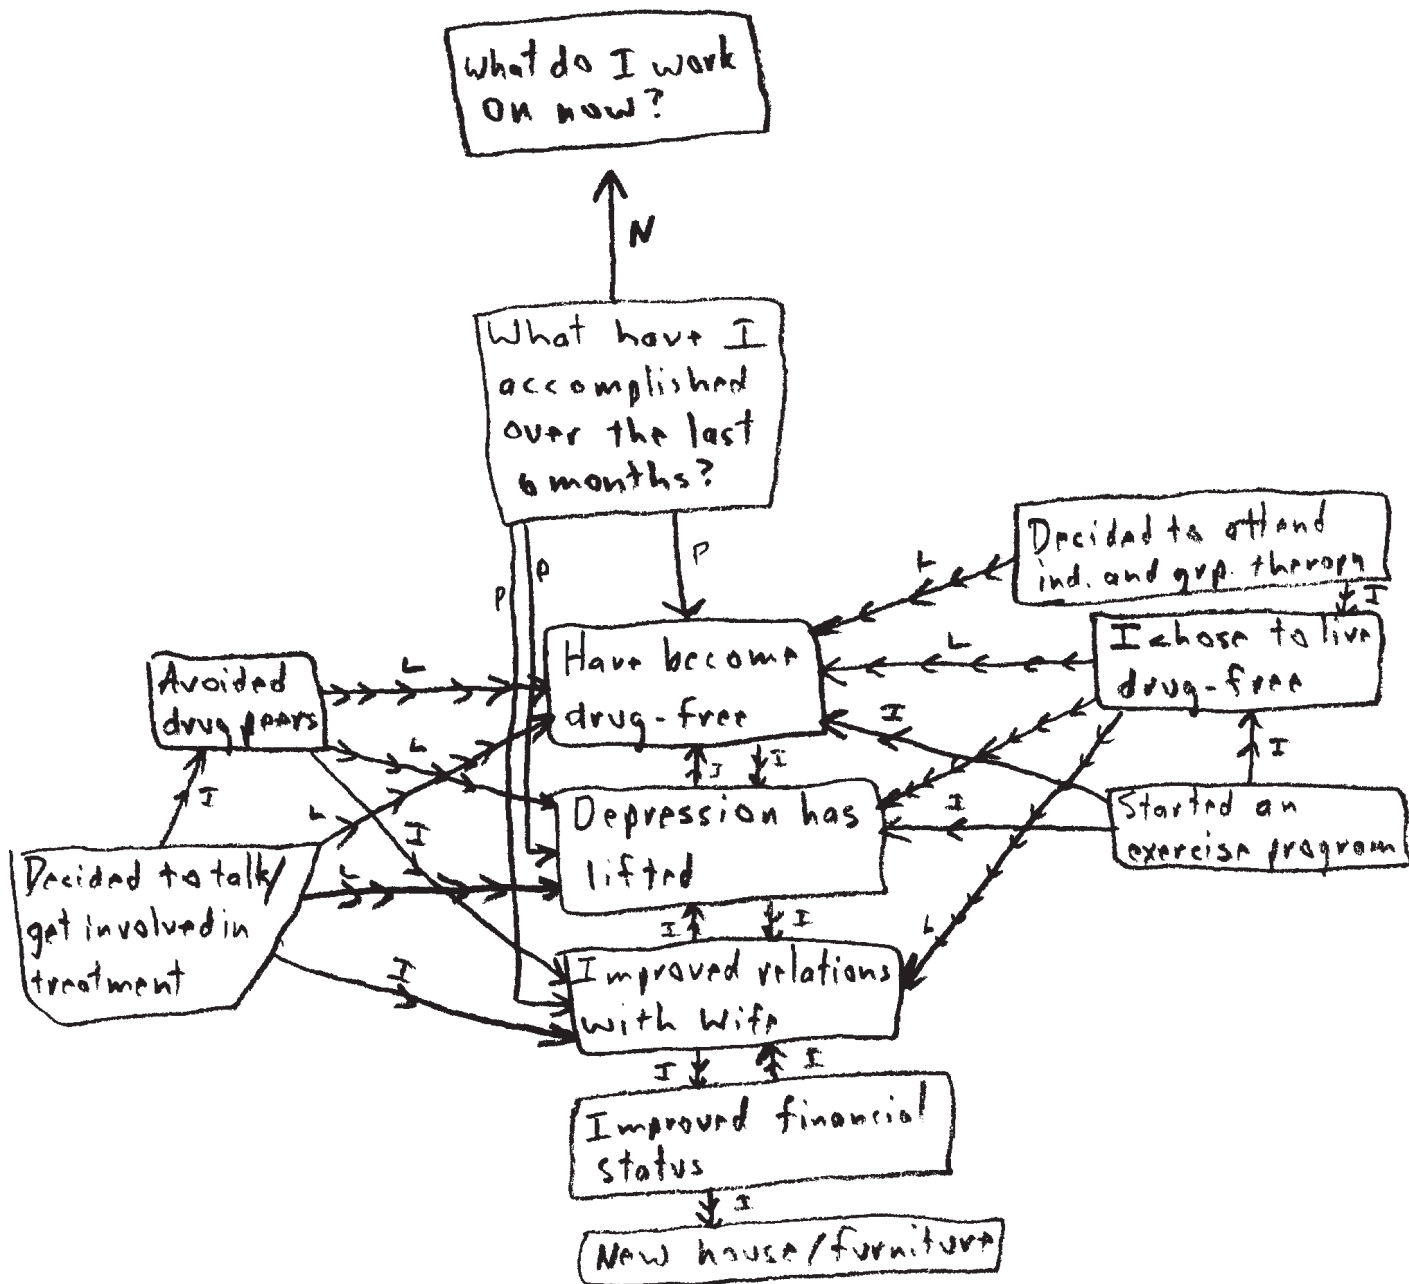 What do I work
on now?
N
What have I
accomplished
over the last
6 months?
P
P
P
Decided to attend
ind. and grp. therapy
L
I
I chose to live
drug-free
L
Have become
drug-free
Avoided
drug peers
L
I
I
I
I
L
L
I
Started an
exercise program
I
Depression has
lifted
I
Decided to talk/
get involved in
treatment
L
L
I
I
Improved relations
with Wife
I
I
I
Improved financial
status
I
New house/furniture